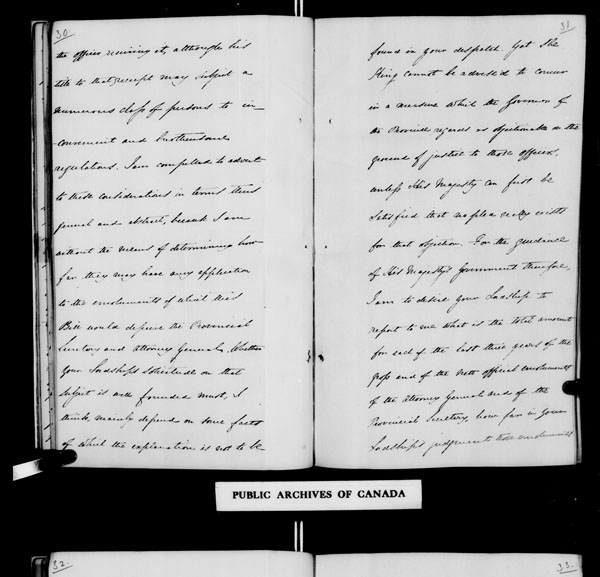 30
the officer receiving it, although his
title to that receipt may subject a
numerous class of persons to in-
convenient and burthensome
regulations. I am compelled to advert
to these considerations in terms thus
general and abstract, because I am
without the means of determining how
far they may have any application
to the emoluments of which this
Bill would deprive the Provincial
Secretary and Attorney General. Whether
your Lordship's solicitude on that
subject is well founded must, I
think, mainly depend on some facts
of which the explanation is not to be
31.
found in your despatch. Yet The
King cannot be advised to concur
in a measure which the Governor of
the Province regards as objectionable on the
ground of justice to those officers,
unless His Majesty can first be
satisfied that no plea really exists
for that objection. For the guidance
of His Majesty's Government therefore,
I am to desire your Lordship to
report to me what is the total amount
for each of the last three years of the
gross and of the nett official emoluments
of the Attorney General and of the
Provincial Secretary, how far in your
Lordship's judgment those emoluments
PUBLIC ARCHIVES OF CANADA
32.
33.